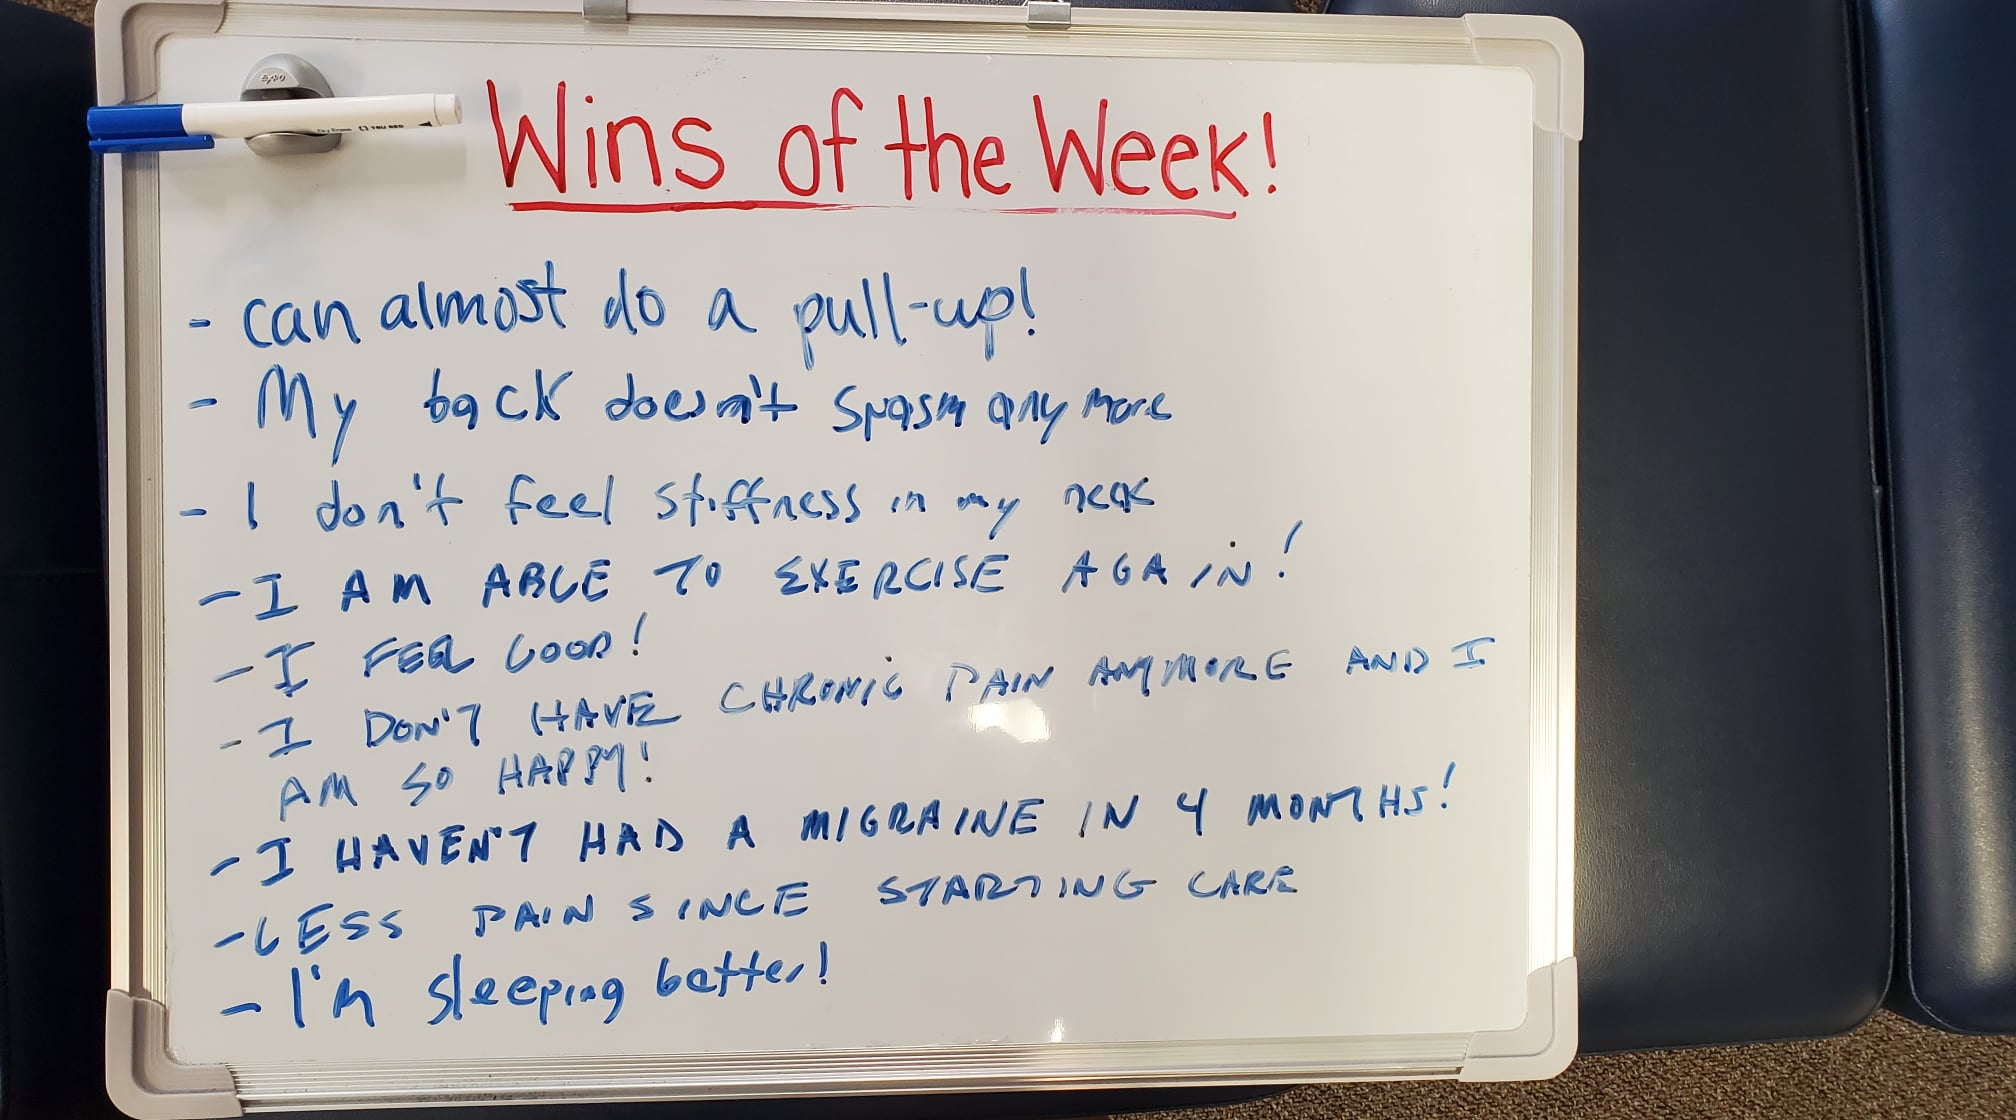 EXPO
Dry Erase TRU RED
Wins of the Week!
- can almost do a pull-up!
- My back doesn't spasm anymore
- I don't feel stiffness in my neck
- I AM ABLE TO EXERCISE AGAIN!
- I FEEL GOOD!
- I DON'T HAVE CHRONIC PAIN ANYMORE AND I
AM SO HAPPY!
- I HAVEN'T HAD A MIGRAINE IN 4 MONTHS!
- LESS PAIN SINCE STARTING CARE
- I'm sleeping better!